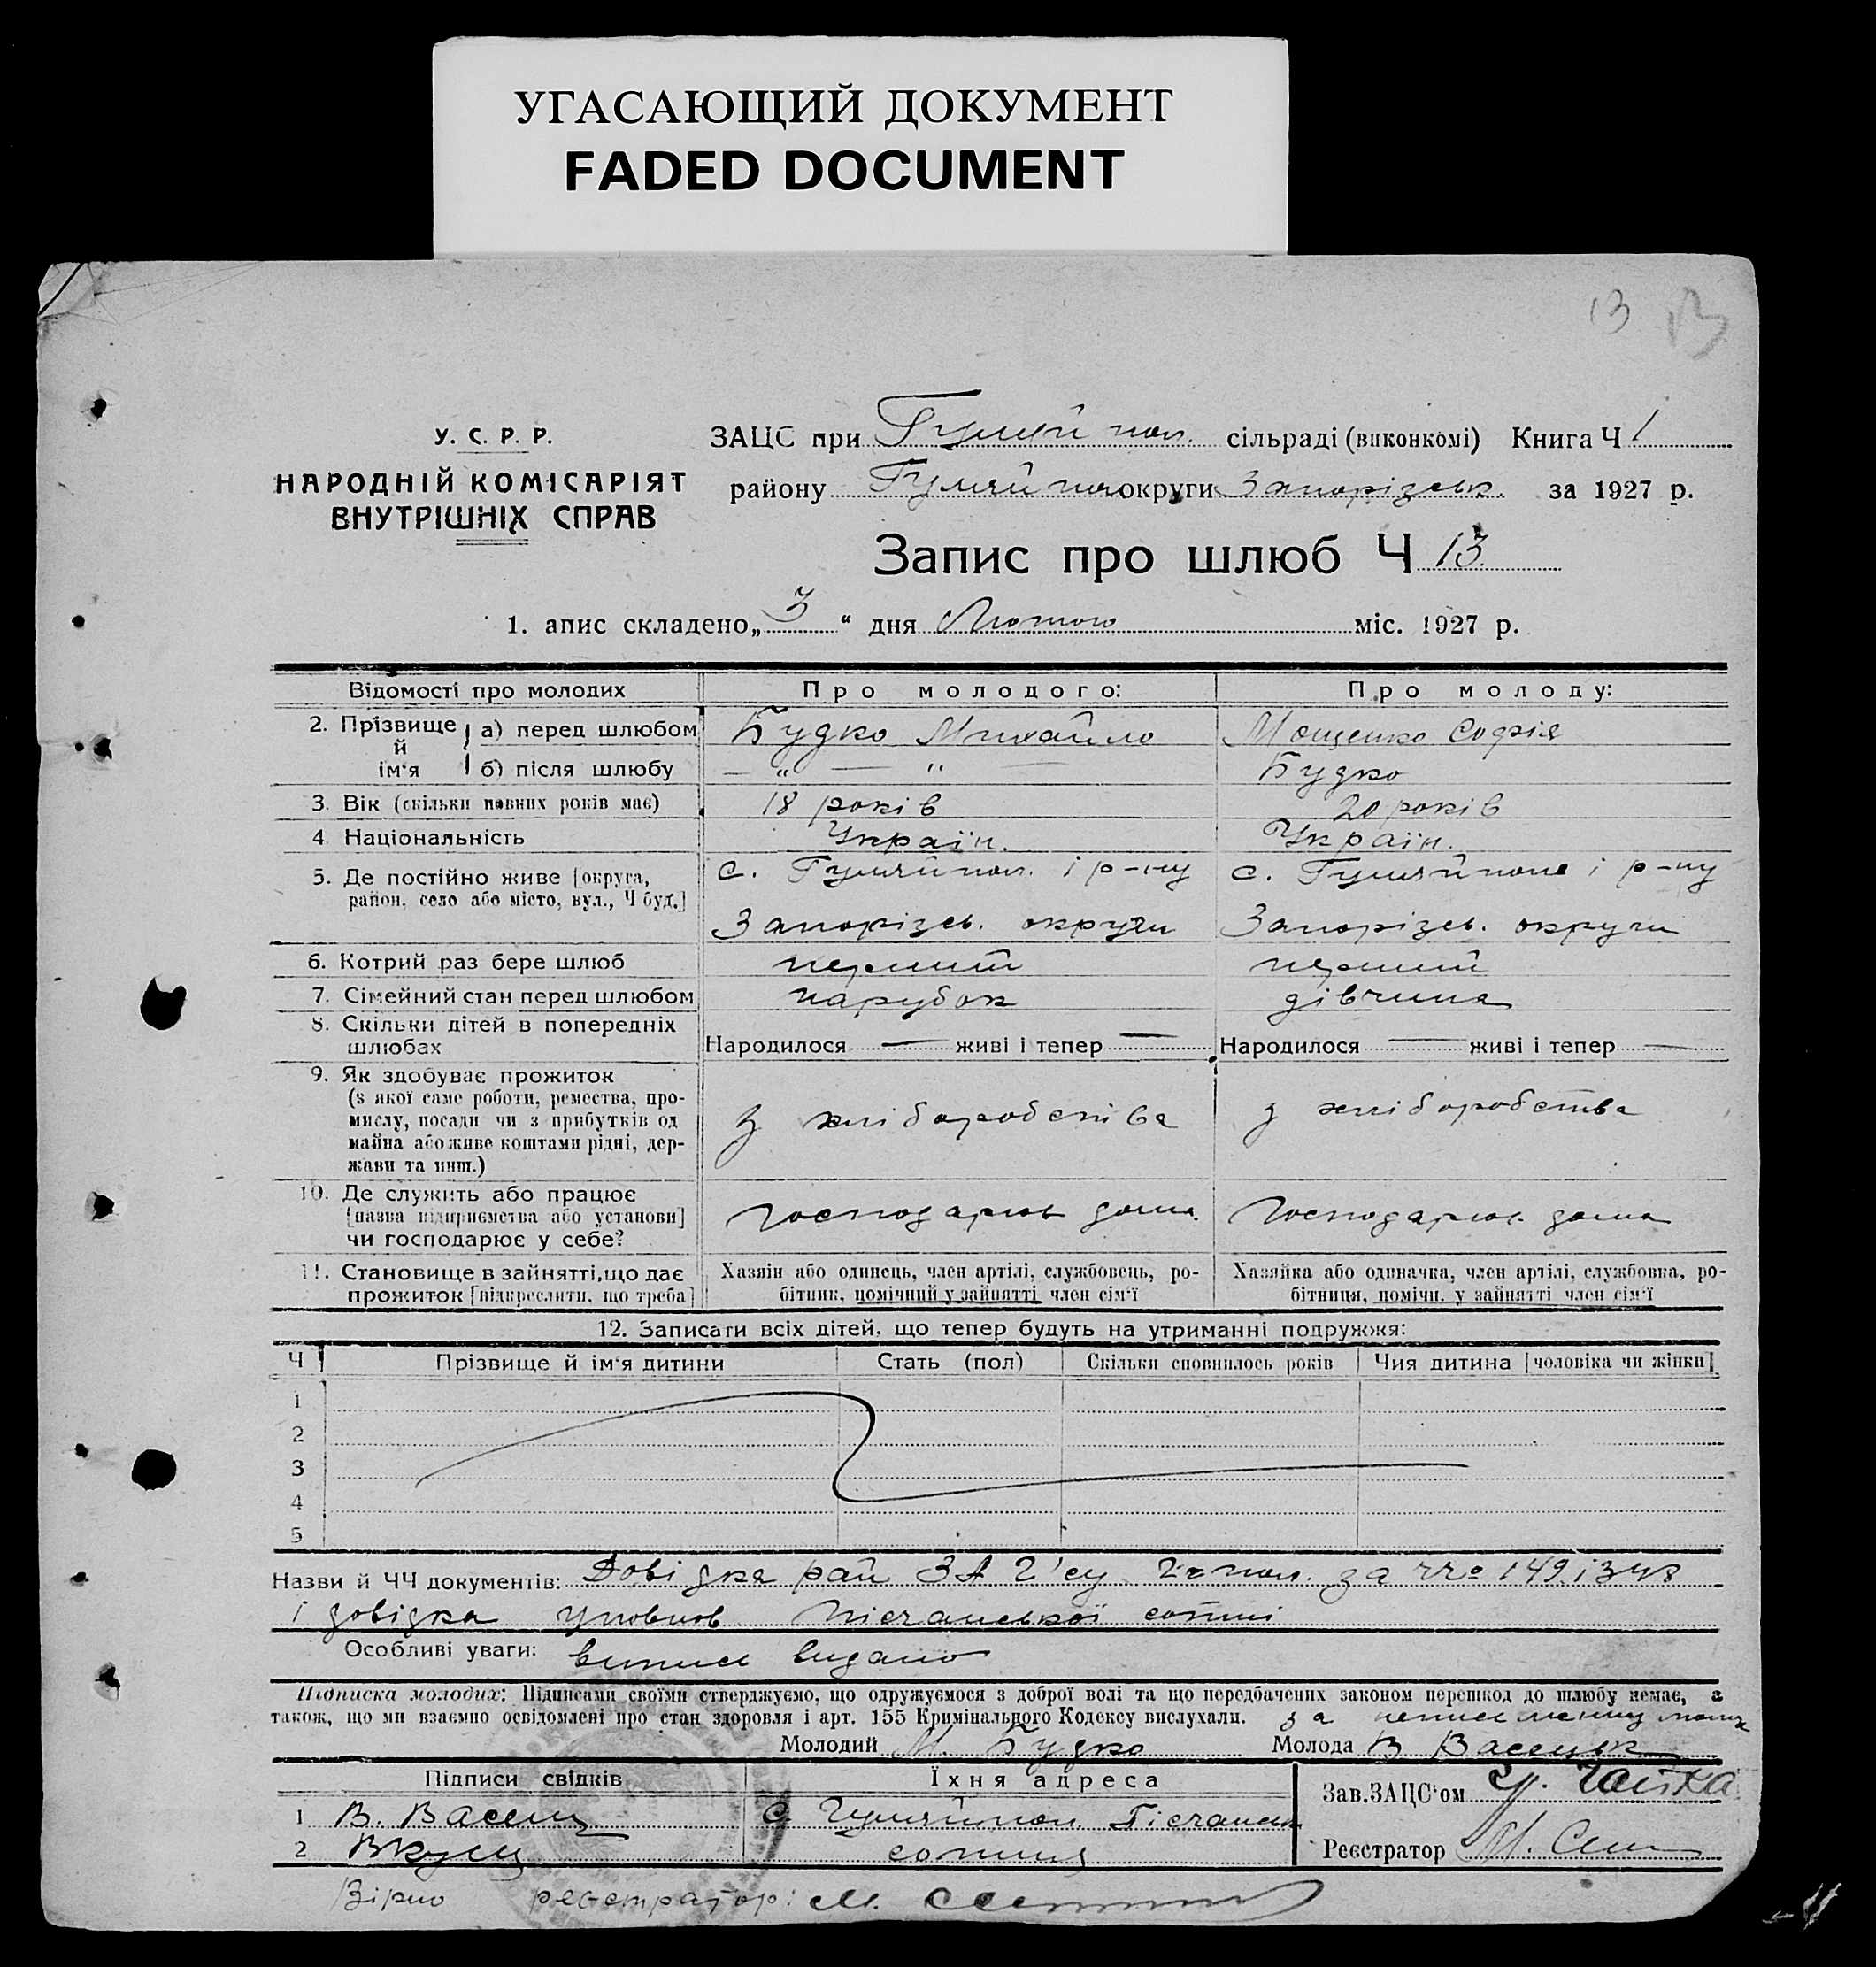 УГАСАЮЩИЙ ДОКУМЕНТ
FADED DOCUMENT
13 13
У. С. Р. Р.
НАРОДНІЙ КОМІСАРІЯТ
ВНУТРІШНІХ СПРАВ
ЗАЦС при Гуляйпол. сільраді (виконкомі) Книга Ч 1
району Гуляйпол округи Запорізськ. за 1927 р.
Запис про шлюб Ч 13
1. апис складено „3“ дня Лютого міс. 1927 р.
Відомості про молодих Про молодого: Про молоду:
2. Прізвище й ім‘я а) перед шлюбом Будко Михайло Мощенко Софія
б) після шлюбу — „ — „ — Будко
3. Вік (скільки повних років має) 18 років 20 років
4. Національність Україн. Україн.
5. Де постійно живе [округа, с. Гуляйпол. і р-ну с. Гуляйполе і р-ну
район, село або місто, вул., Ч буд.]
Запорізсь. округи Запорізсь. округи
6. Котрий раз бере шлюб перший перший
7. Сімейний стан перед шлюбом парубок дівчина
8. Скільки дітей в попередніх
шлюбах Народилося — живі і тепер — Народилося — живі і тепер —
9. Як здобуває прожиток
(з якої саме роботи, ремества, про-
мислу, посади чи з прибутків од з хліборобства з хліборобства
майна або живе коштами рідні, дер-
жави та инш.)
10. Де служить або працює
[назва підприємства або установи] господарює дома Господарює дома
чи господарює у себе?
11. Становище в зайнятті, що дає Хазяїн або одинець, член артілі, службовець, ро- Хазяйка або одиначка, член артілі, службовка, ро-
прожиток [підкреслити, що треба] бітник, помічний у зайнятті член сім‘ї бітниця, помічн. у зайнятті член сім‘ї
12. Записати всіх дітей, що тепер будуть на утриманні подружжя:
Ч Прізвище й ім‘я дитини Стать (пол) Скільки сповнилось років Чия дитина [чоловіка чи жінки]
1
2
3
4
5
Назви й ЧЧ документів: Довідка рай ЗАГ'су за 149 і 348
і довідка уповнов Пісчанської сотні
Особливі уваги: випис видано
Підписка молодих: Підписами своїми стверджуємо, що одружуємося з доброї волі та що передбачених законом перешкод до шлюбу немає, а
також, що ми взаємно освідомлені про стан здоровля і арт. 155 Кримінального Кодексу вислухали. за неписьменну
Молодий М. Будко Молода В Васецьк
Підписи свідків Їхня адреса Зав. ЗАЦС‘ом
1 В. Васец с Гуляйпол Пісчанськ
2 сотня Реєстратор М.
Вірно реєстратор: М.